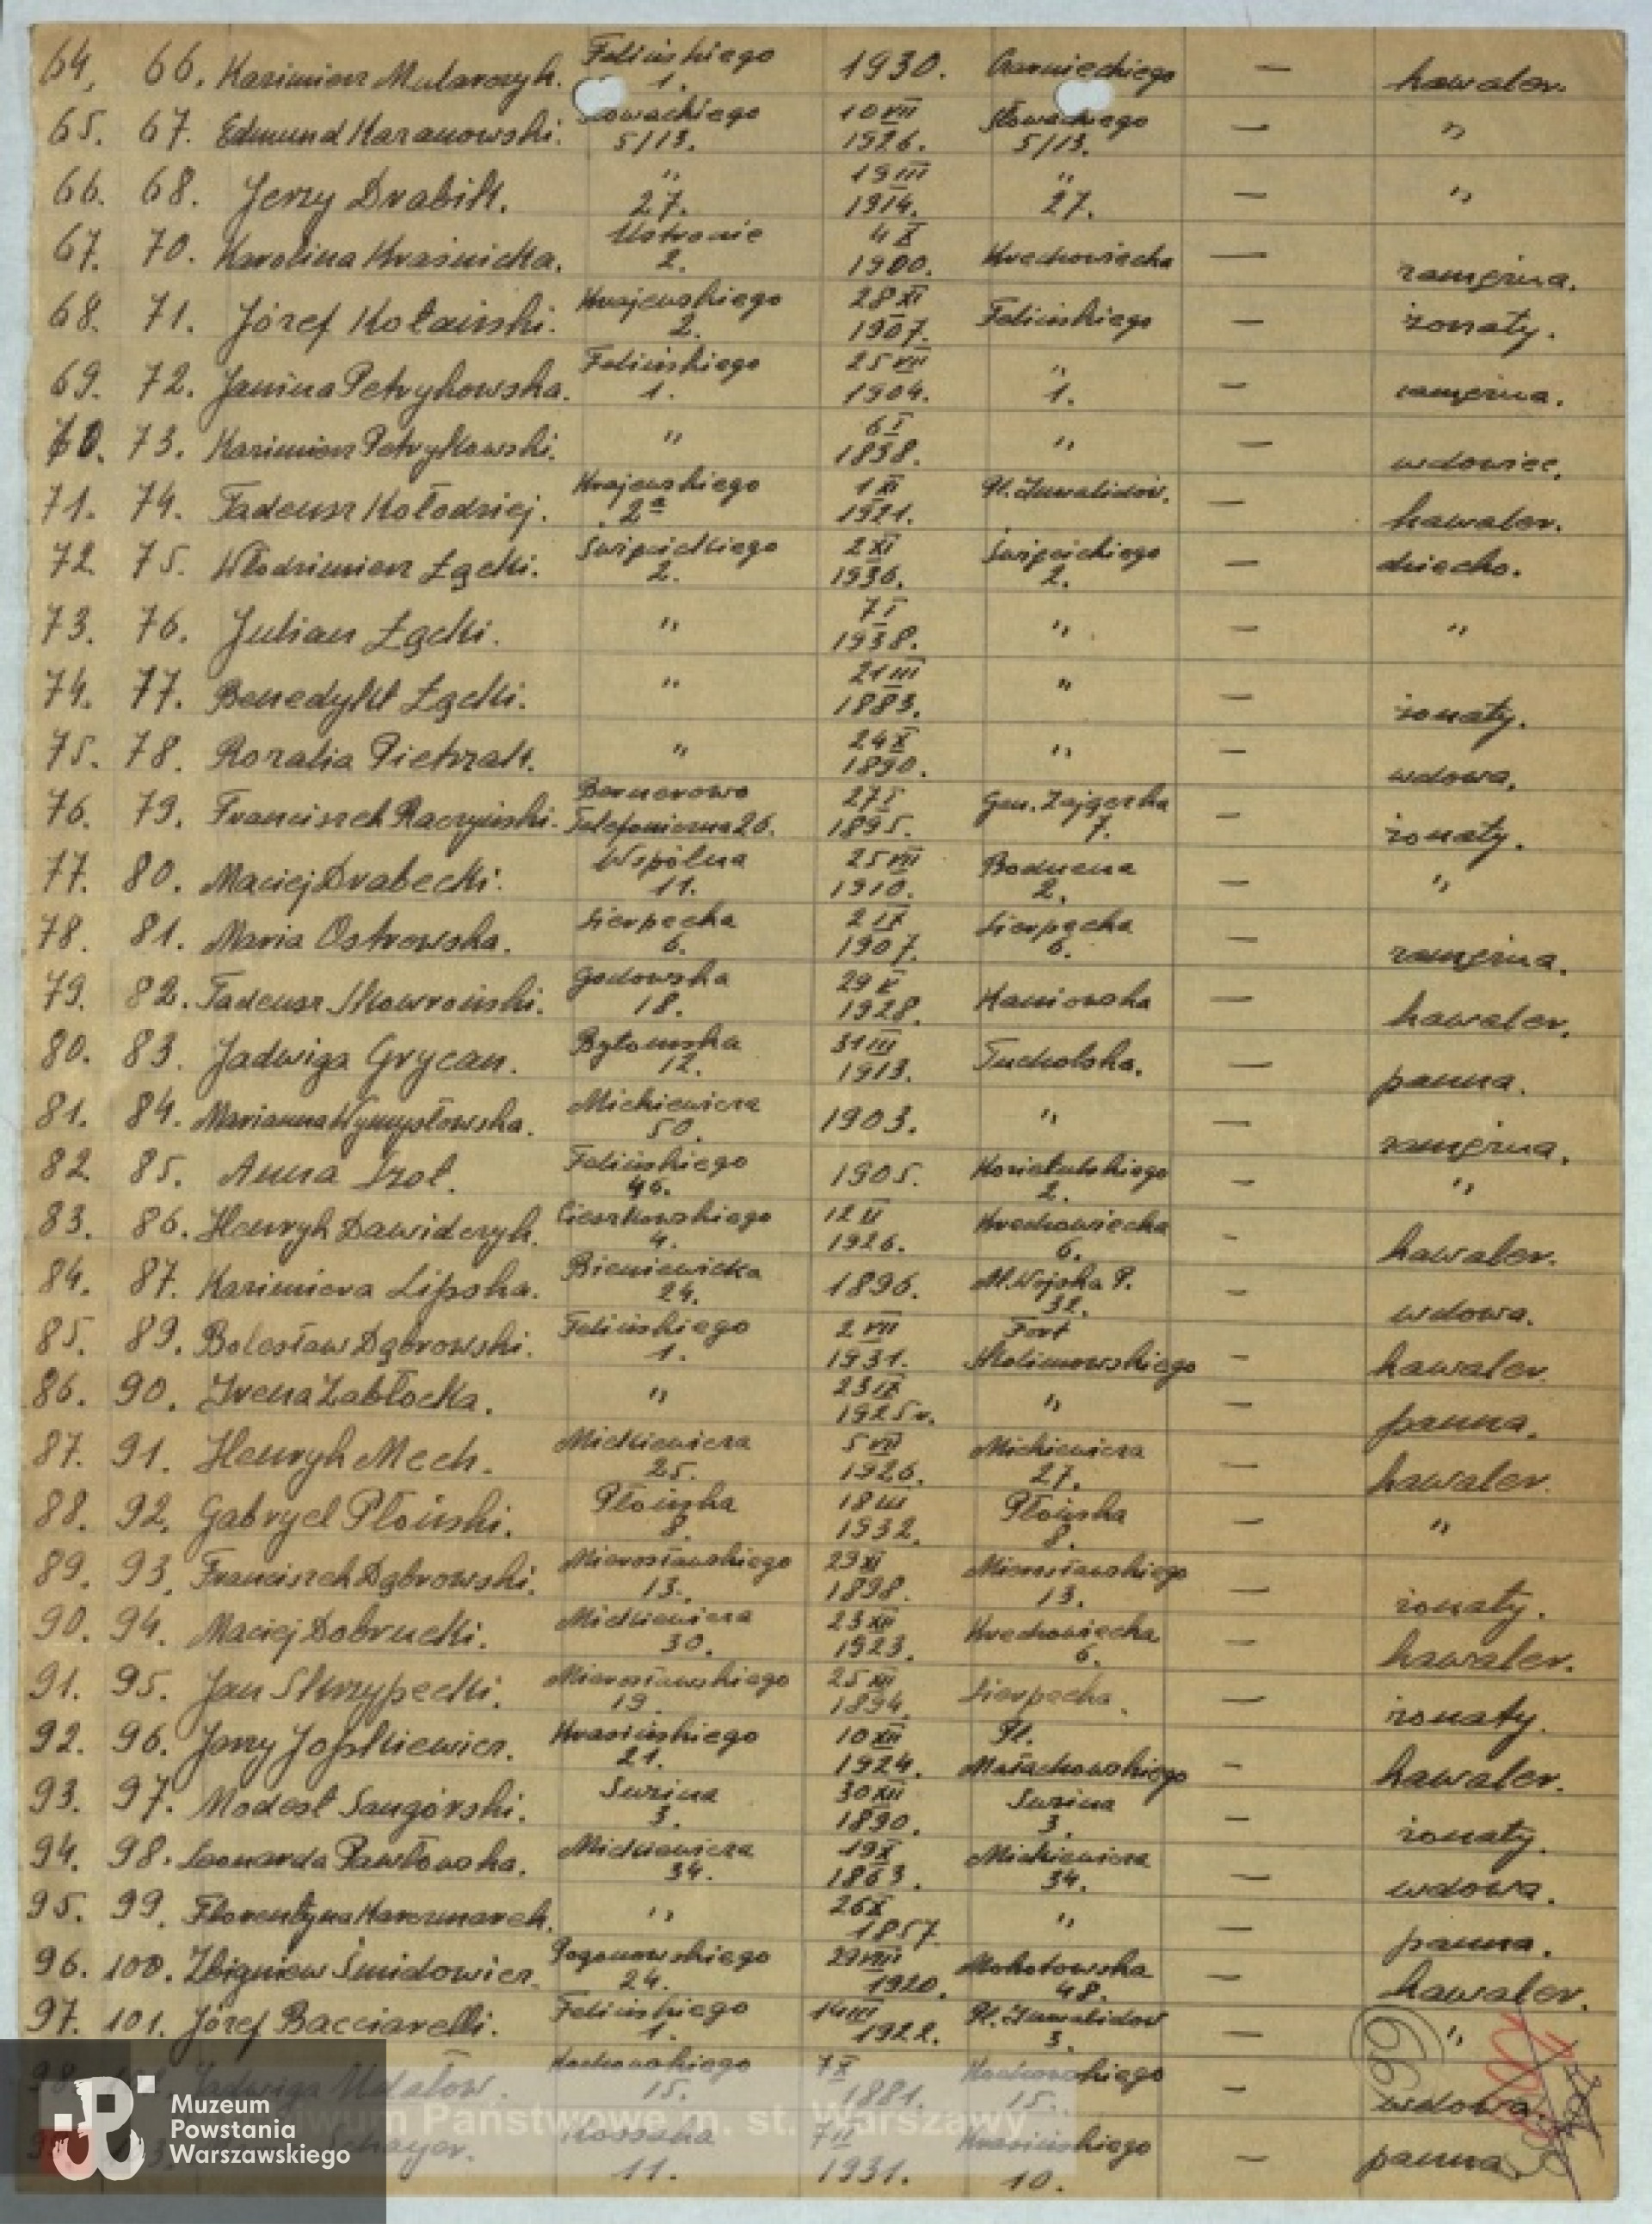 64. 66. Kazimierz Mularczyk. Felińskiego 1. 1930. Czarnieckiego — kawaler.
65. 67. Edmund Karanowski. Słowackiego 5/13. 10 VII 1926. Słowackiego 5/13. — "
66. 68. Jerzy Drabik. " 27. 19 III 1914. " 27. — "
67. 70. Karolina Kraśnicka. Ustronie 2. 4 X 1900. Krechowiecka — zamężna.
68. 71. Józef Kołaiński. Krajewskiego 2. 28 XI 1907. Felińskiego — żonaty.
69. 72. Janina Petrykowska. Felińskiego 1. 25 VII 1904. " 1. — zamężna.
70. 73. Kazimierz Petrykowski. " 6 I 1858. " — wdowiec.
71. 74. Tadeusz Kołodziej. Krajewskiego 2a 1 XI 1921. Pl. Inwalidów. — kawaler.
72. 75. Włodzimierz Łącki. Święcickiego 2. 2 XI 1936. Święcickiego 2. — dziecko.
73. 76. Julian Łącki. " 7 I 1938. " — "
74. 77. Benedykt Łącki. " 21 III 1883. " — żonaty.
75. 78. Rozalia Pietrzak. " 24 X 1890. " — wdowa.
76. 79. Franciszek Raczyński. Bernerowo Telefoniczna 26. 27 I 1895. Gen. Zajączka 7. — żonaty.
77. 80. Maciej Drabecki. Wspólna 11. 25 VII 1910. Boduena 2. — "
78. 81. Maria Ostrowska. Sierpecka 6. 2 IX 1907. Sierpecka 6. — zamężna.
79. 82. Tadeusz Skowroński. Godowska 18. 29 V 1928. Kaniowska — kawaler.
80. 83. Jadwiga Grycan. Bytomska 12. 31 III 1913. Tucholska. — panna.
81. 84. Marianna Wymysłowska. Mickiewicza 50. 1903. " — zamężna.
82. 85. Anna Szol. Felińskiego 46. 1905. Kozietulskiego 2. — "
83. 86. Henryk Dawidczyk. Cieszkowskiego 4. 12 II 1926. Krechowiecka 6. - kawaler.
84. 87. Kazimiera Lipska. Bieniewicka 24. 1896. Al. Wojska P. 32. - wdowa.
85. 89. Bolesław Dąbrowski. Felińskiego 1. 2 VII 1931. Fort Skolimowskiego - kawaler.
86. 90. Irena Zabłocka. " 23 IX 1925 r. " - panna.
87. 91. Henryk Mech. Mickiewicza 25. 5 VII 1926. Mickiewicza 27. — kawaler.
88. 92. Gabryel Płoński. Płońska 8. 18 III 1932. Płońska 8. — "
89. 93. Franciszek Dąbrowski. Mierosławskiego 13. 29 XI 1898. Mierosławskiego 13. — żonaty.
90. 94. Maciej Dobrucki. Mickiewicza 30. 23 XII 1923. Krechowiecka 6. - kawaler.
91. 95. Jan Skrzypecki. Mierosławskiego 19. 25 III 1894. Sierpecka. — żonaty.
92. 96. Jerzy Jopkiewicz. Krasińskiego 21. 10 XII 1924. Pl. Małachowskiego - kawaler.
93. 97. Modest Sangórski. Suzina 3. 30 XII 1890. Suzina 3. - żonaty.
94. 98. Leonarda Pawłowska. Mickiewicza 34. 19 X 1863. Mickiewicza 34. — wdowa.
95. 99. Florentyna Karczmarek. " 26 X 1857. " — panna.
96. 100. Zbigniew Śmidowicz. Pogonowskiego 24. 29 VIII 1920. Mokotowska 48. - kawaler.
97. 101. Józef Bacciarelli. Felińskiego 1. 14 III 1922. Pl. Inwalidów 3. — "
98. Jadwiga Udałow. Kochowskiego 15. 7 X 1881. Kochowskiego 15. - wdowa.
Kossaka 11. 7 II 1931. Krasińskiego 10. - panna.
99
Muzeum
Powstania
Warszawskiego
Państwowe m. st. Warszawy